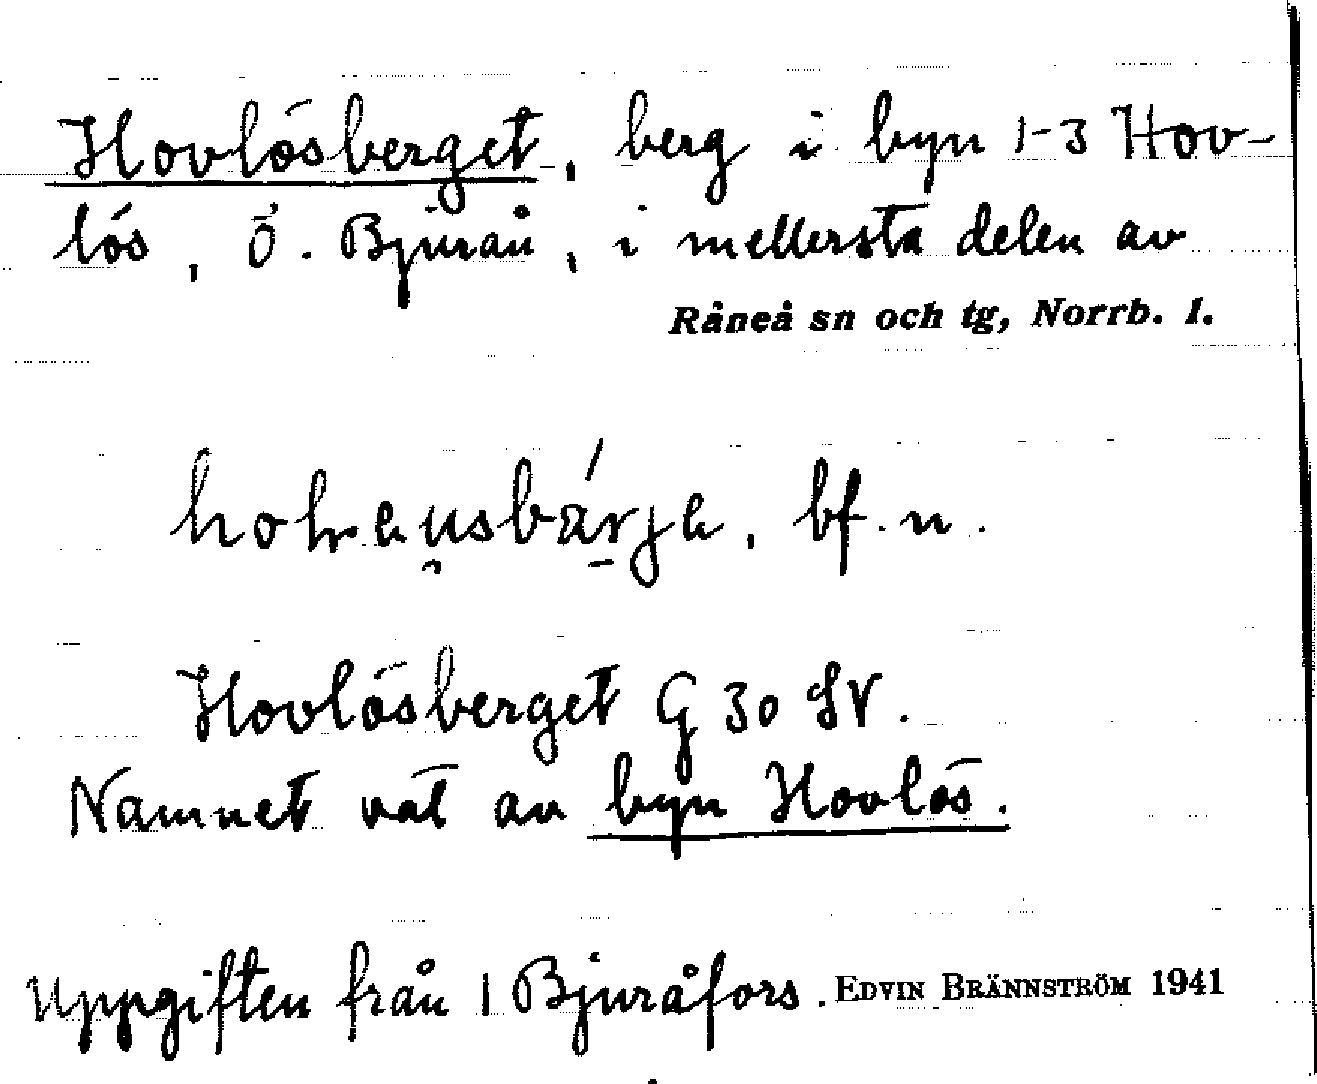 Hovlösberget, berg i byn 1-3 Hov-
lös, Ö. Bjuraå, i mellersta delen av
Råneå sn och tg, Norrb. l.
bf. n.
Hovlösberget G 30 SV.
Namnet väl av byn Hovlös.
Uppgiften från 1 Bjuråfors. EDVIN BRÄNNSTRÖM 1941